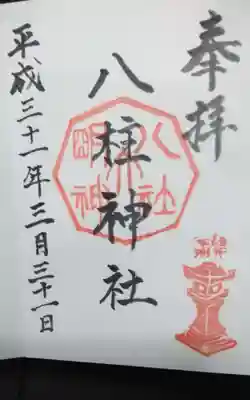 奉拝
八柱神社
平成三十一年三月三十一日